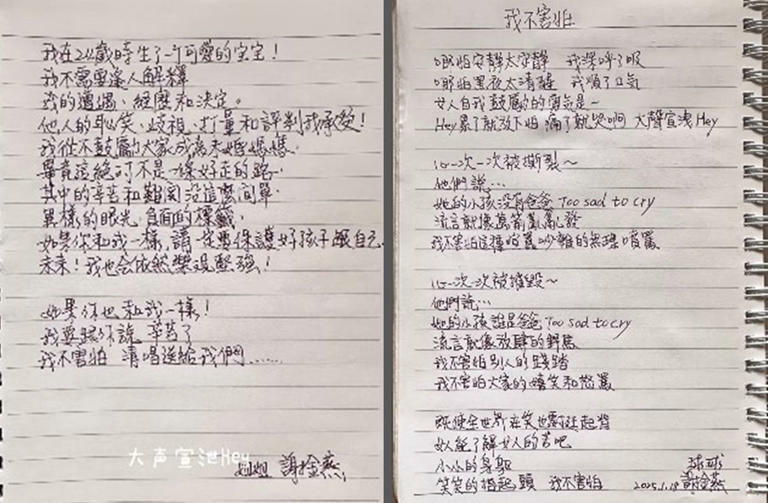 我在24歲時生了一个可愛的宝宝！
我不需要逢人解釋
我的遭遇、經歷和決定。
他人的恥笑、歧視、打量和評判我承受！
我從不鼓勵大家成為未婚媽媽。
畢竟這絕對不是一條好走的路。
其中的辛苦和難關沒這麼簡單。
異樣的眼光，負面的標籤。
如果你和我一樣，請一定要保護好孩子跟自己
未來！我也会依然樂浸堅強！
如果你也和我一樣！
我要跟你說 辛苦了
我不害怕 清唱送給我們......
大声宣泄Key
謝金燕
我不害怕
哪怕安靜太安靜 我深呼了吸
哪怕黑夜太清醒 我順了口氣
女人自我鼓勵的勇氣是~
Hey累了就放下怕 痛了就哭啊 大聲宣洩Hey
心一次一次被撕裂~
他們說...
她的小孩沒有爸爸 Too sad to cry
流言就像萬箭亂亂發
我不害怕這種喧囂吵雜的無理喧罵
心一次一次被摧毀~
他們說...
她的小孩誰是爸爸 Too sad to cry
流言就像放肆的野馬
我不害怕別人的踐踏
我不害怕大家的嘻笑和怒罵
既使全世界在笑也要挺起背
女人能了解女人的苦吧
小小的身軀
笑笑的抬起頭 我不害怕
2025.1.18 謝金燕